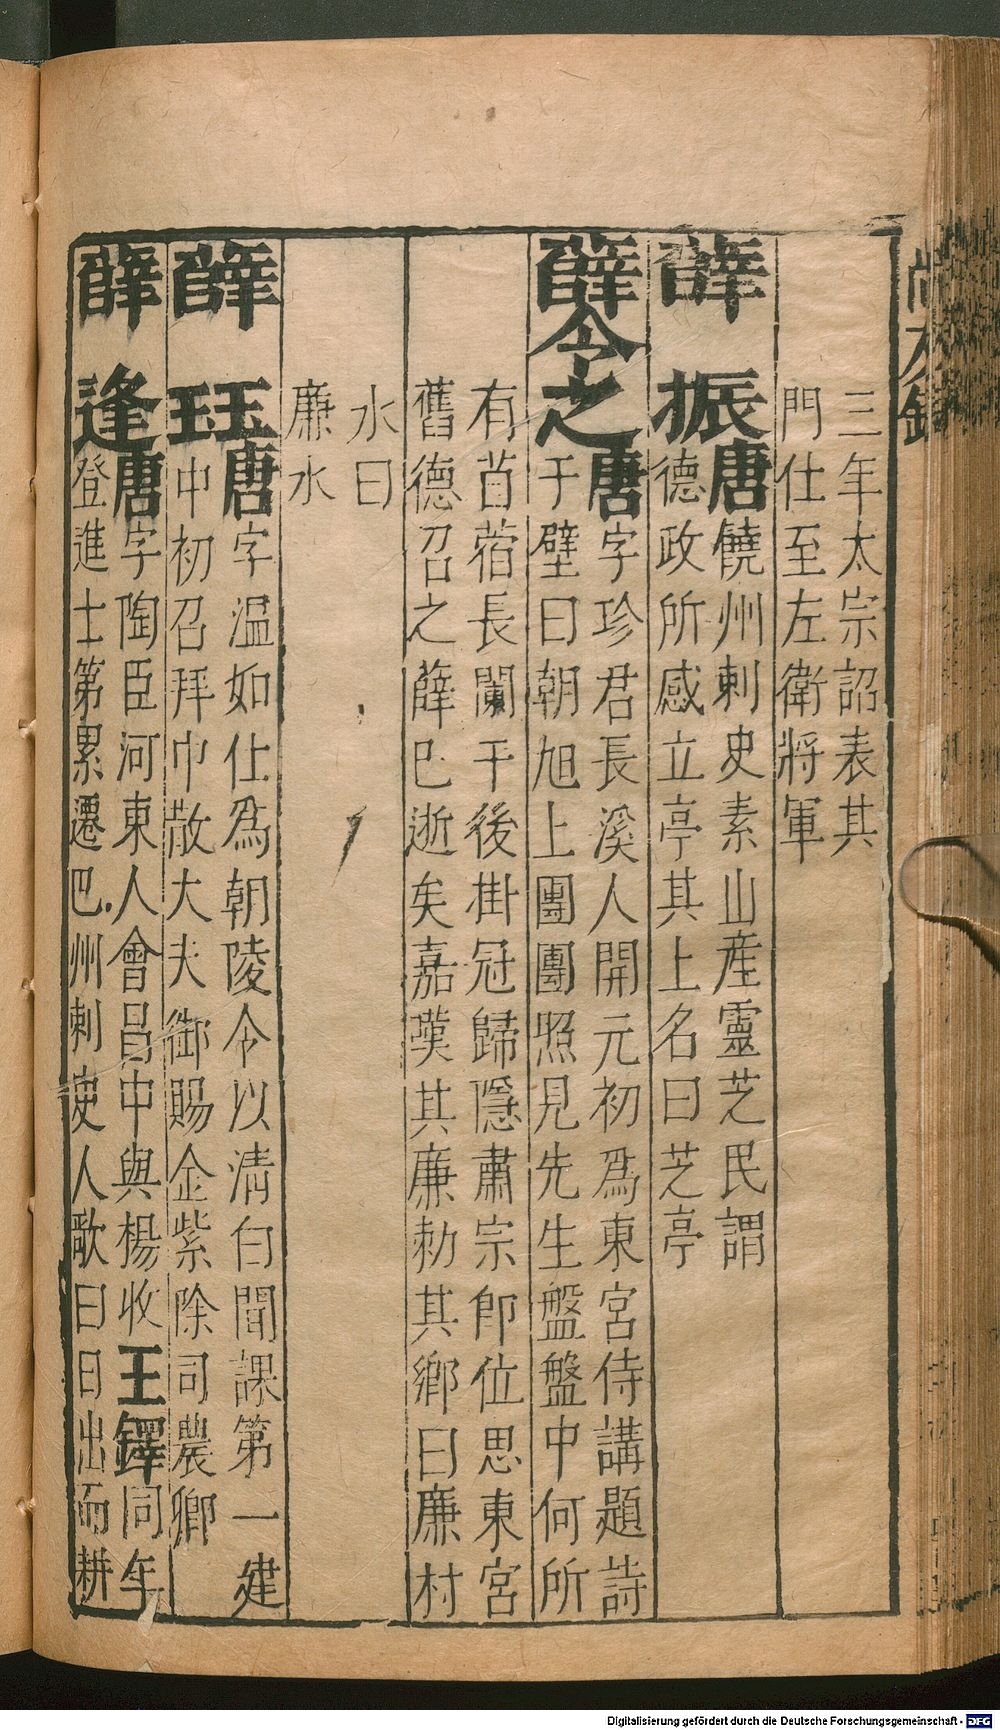 尚友錄
三年太宗詔表其
門仕至左衛將軍
薛振唐饒州刺史素山産靈芝民謂
德政所感立亭其上名曰芝亭
薛令之唐字珍君長溪人開元初爲東宮侍講題詩
于壁曰朝旭上團團照見先生盤盤中何所
有苜蓿長闌干後掛冠歸隱肅宗卽位思東宮
舊德召之薛巳逝矣嘉嘆其廉勑其鄉曰廉村
水曰
廉水
薛珏唐字温如仕爲朝陵令以清白聞課第一建
中初召拜巾散大夫御賜金紫除司農卿
薛逢唐字陶臣河東人會昌中與楊收王鐸同年
登進士第累遷巴州刺史人歌曰日出而耕
Digitalisierung gefördert durch die Deutsche Forschungsgemeinschaft - DFG